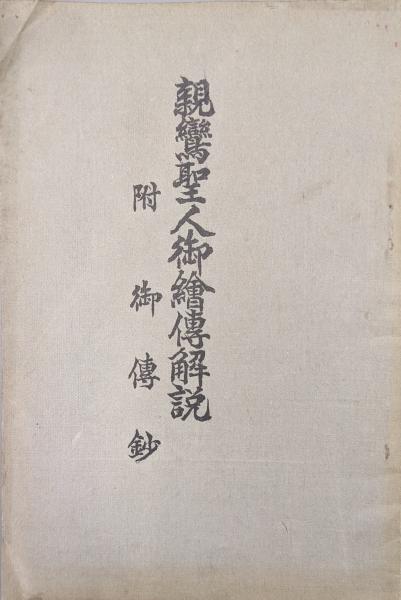 親鸞聖人御繪傳解説
附御傳鈔